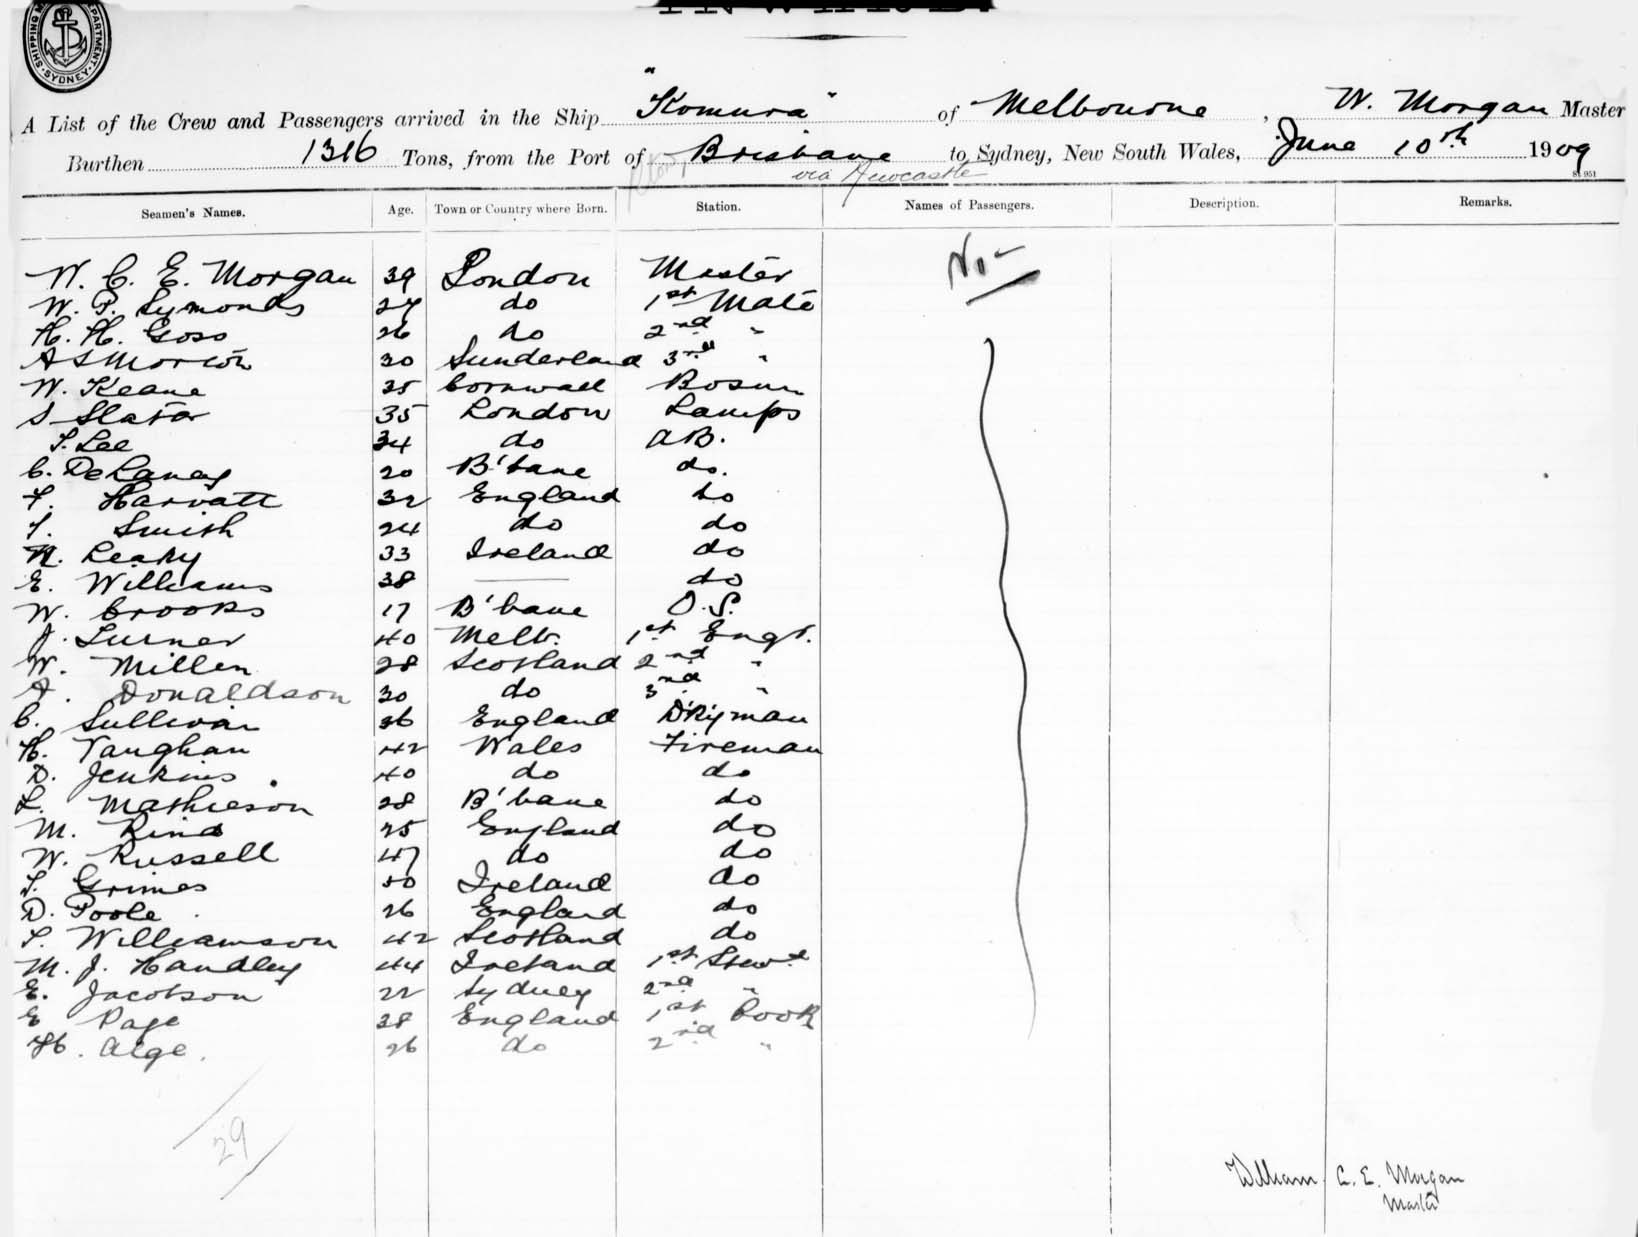 SHIPPING MASTER'S DEPARTMENT SYDNEY
A List of the Crew and Passengers arrived in the Ship "Komura" of Melbourne, W. Morgan Master
Burthen 1316 Tons, from the Port of Brisbane to Sydney, New South Wales, June 10th 1909
via Newcastle
St 951
Seamen's Names. Age. Town or Country where Born. Station. Names of Passengers. Description. Remarks.
W. C. E. Morgan 39 London Master Nil
W. P. Symonds 27 do 1st Mate
H. H. Goss 26 do 2nd "
A S Morton 30 Sunderland 3rd "
W. Keane 35 Cornwall Bosun
S Slator 35 London Lamps
T. Lee 34 do AB.
C. DeLaney 20 B'bane do.
F. Harvatt 32 England do
T. Smith 24 do do
M. Leahy 33 Ireland do
E. Williams 38 —— do
W. Crooks 17 B'bane O.S.
J. Turner 40 Melb. 1st Engr.
W. Millen 28 Scotland 2nd "
A. Donaldson 30 do 3rd "
C. Sullivan 36 England D'kyman
H. Vaughan 42 Wales Fireman
D. Jenkins 40 do do
L. Mathieson 28 B'bane do
M. Rind 25 England do
W. Russell 47 do do
T. Grimes 50 Ireland do
D. Poole 26 England do
T. Williamson 42 Scotland do
M. J. Handley 44 Ireland 1st Stewd
E. Jacobson 22 Sydney 2nd "
E Page 38 England 1st Cook
H. Alge. 26 do 2nd "
29
William C. E. Morgan
Master